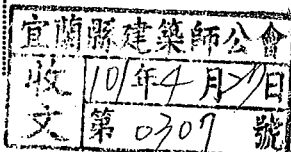 宜蘭縣建築師公會
收文
101年4月27日
第0307號